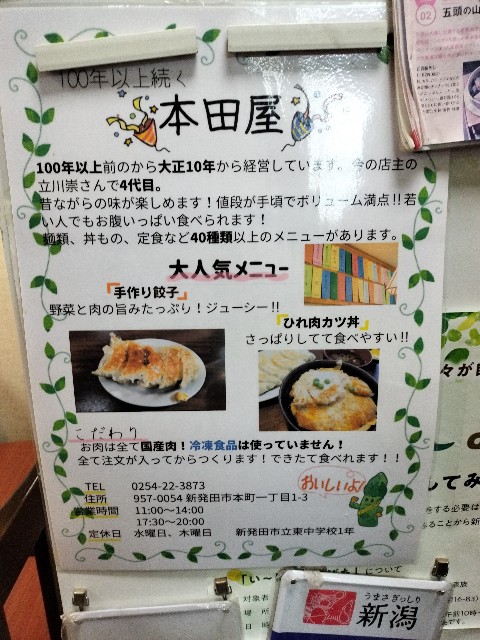 100年以上続く
本田屋
100年以上前のから大正10年から経営しています。今の店主の
立川崇さんで4代目。
昔ながらの味が楽しめます！値段が手頃でボリューム満点!!若
い人でもお腹いっぱい食べられます！
麺類、丼もの、定食など40種類以上のメニューがあります。
大人気メニュー
「手作り餃子」
野菜と肉の旨みたっぷり！ジューシー!!
「ひれ肉カツ丼」
さっぱりしてて食べやすい!!
こだわり
お肉は全て国産肉！冷凍食品は使っていません！
全て注文が入ってからつくります！できたて食べれます！！
おいしいよ♪
TEL 0254-22-3873
住所 957-0054 新発田市本町一丁目1-3
営業時間 11:00～14:00
17:30～20:00
定休日 水曜日、木曜日 新発田市立東中学校1年
02 五頭の山
してみ
をする必要は
ることから新
について
対象者
場所
うまさぎっしり
新潟